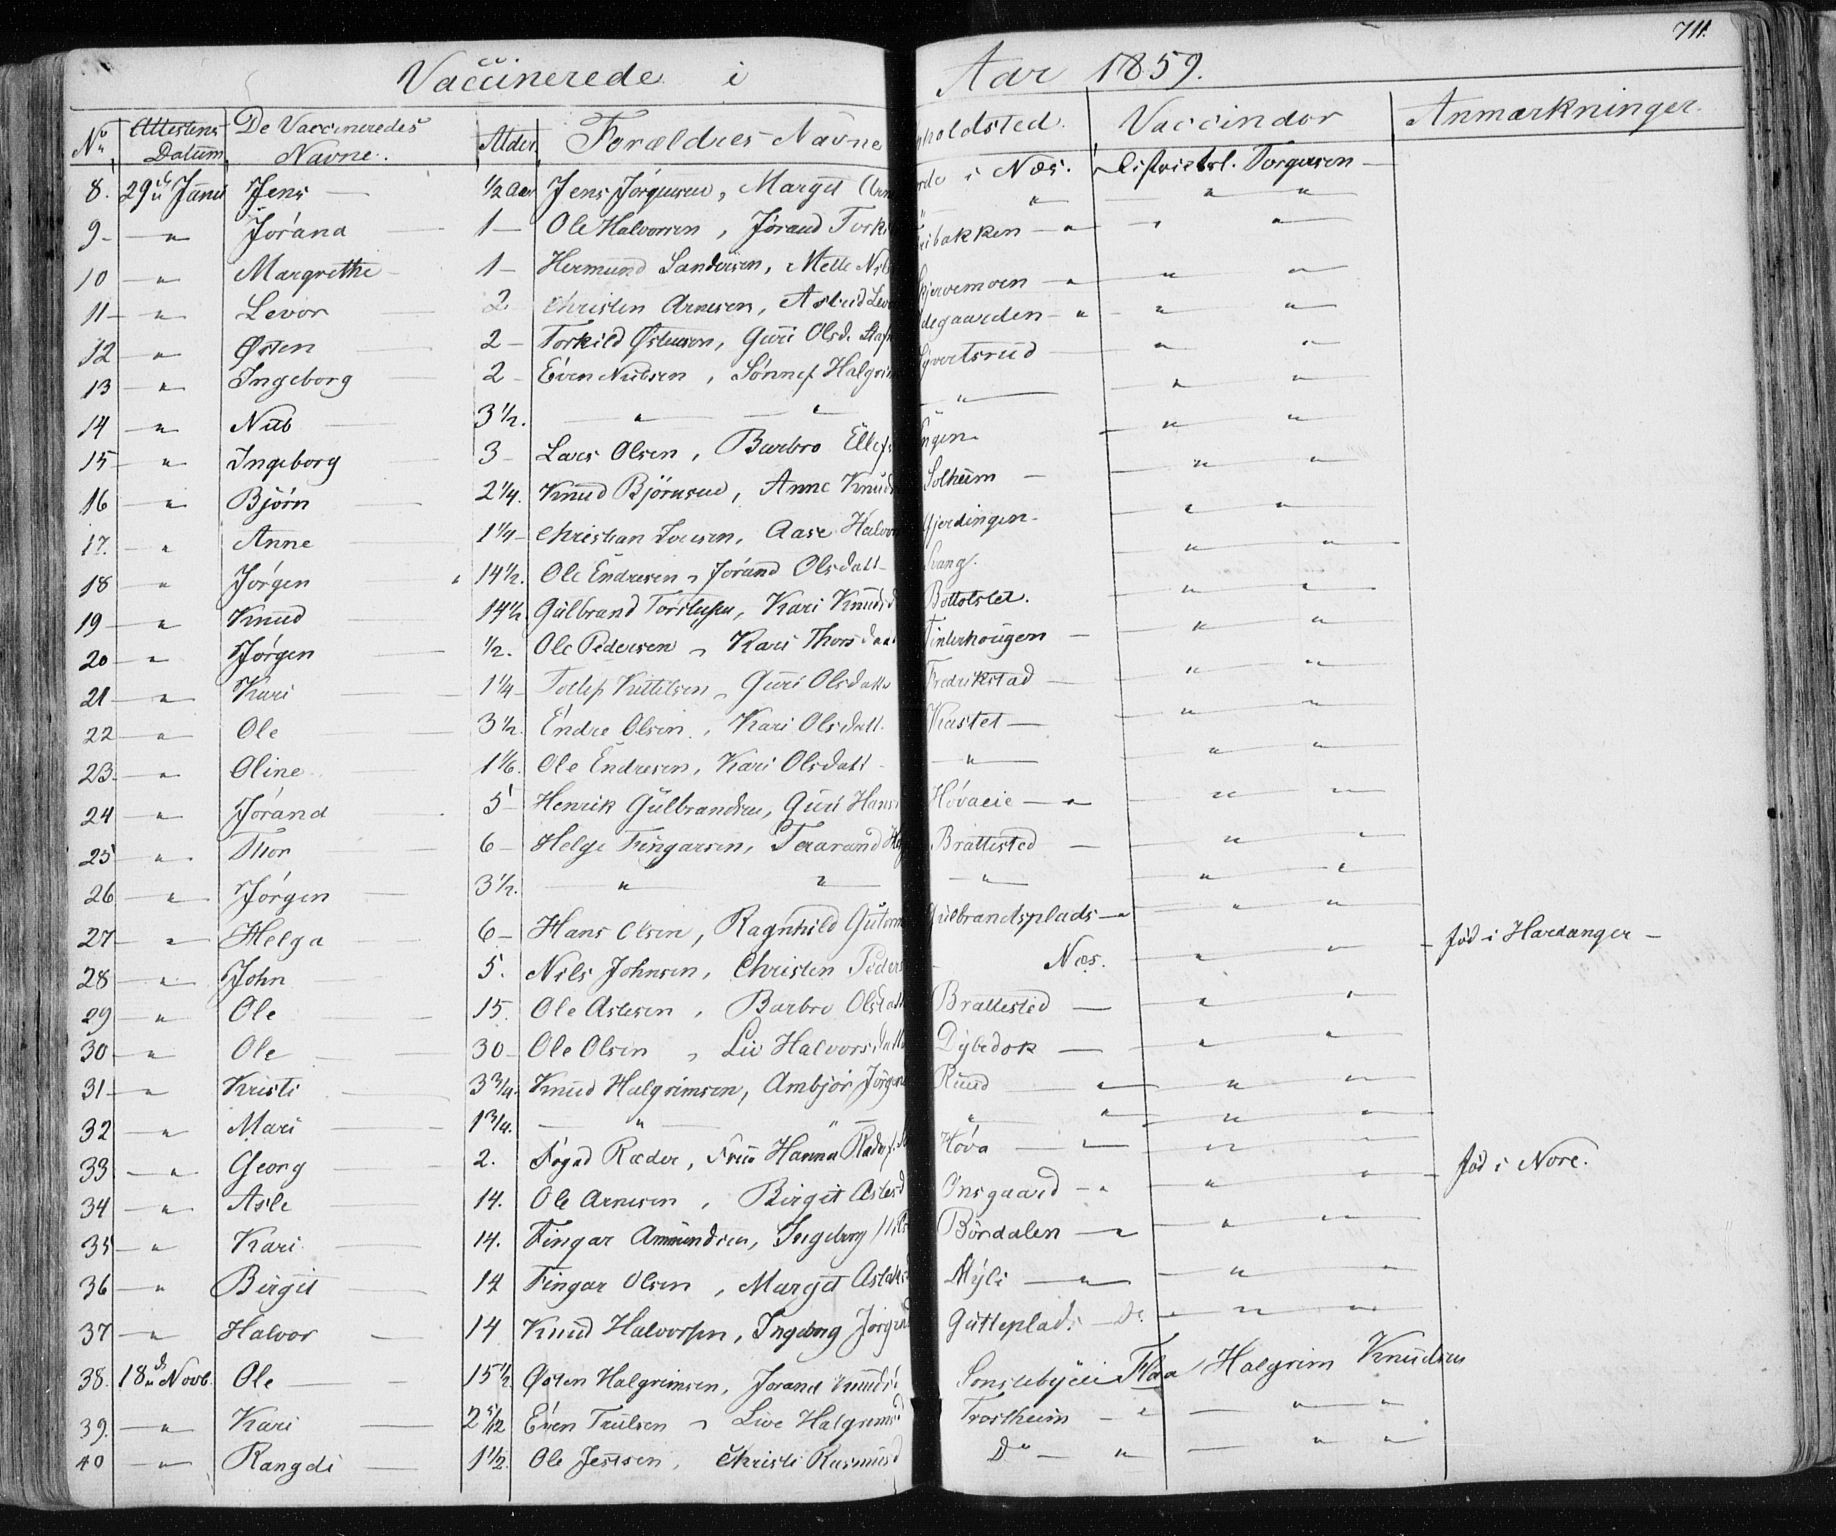 711.
Vaccinerede i Aar 1859.
No Attestens Datum De Vaccineredes Navne. Alder Forældres Navne holdsted. Vaccindør Anmærkninger.
8. 29de Januar Jens — 1/2 aar Jens Jörgensen, Margit Arn rde i Næs. Districtsl. Torgersen —
9 — " Jöránd — 1 — Ole Halvorsen, Jörand Torki " — " — " "
10 — " Margrethe — 1 — Hermund Sandersen, Mette Nil ibakken — " — " "
11 — " Levor — 2 Christen Arnesen, Astrid Levo Skjervemoen — " — " "
12 — " Østen — 2 — Torkild Østensen, Guri Olsd. Staf degaarden — " — " "
13 — " Ingeborg — 2 — Even Nubsen, Sönnef Halgrim Syvertsrud — " "
14 — " Nub — 3 1/2. — " — " — " — " "
15 — " Ingeborg — 3 — Lars Olsen, Barbro Ellefs Engen — " "
16 — " Björn — 2 1/4. Knud Björnsen, Anne Knuds Solheim — " "
17. — " Anne — 1 1/4 — Christian Iversen, Aase Halvor Gjerdingen — " "
18 — " Jörgen — 14 1/2. Ole Endresen, Jöránd Olsdatt — " "
19 — " Knud — 14 1/2 Gulbrand Torstensen, Kari Knudsd Bottolslet. — " "
20 — " Jörgen — 1/2. Ole Pedersen, Kari Thorsdaat Tinterhougen — " "
21 — " Kari — 1 1/4 — Tollef Kittelsen, Guri Olsdatt Fredrikstad — " "
22 — " Ole — 3 1/2. Endre Olsen, Kari Olsdatt. Kastet — " "
23 — " Oline — 1 1/6. Ole Endresen, Kari Olsdatt — " — " "
24 — " Jöránd — 5 — Henrik Gulbrandsen, Guri Hans Hövaeie — " — " "
25 — " Thor — 6 — Helge Fingarsen, Haf Brattested — " "
26 — " Jörgen — 3 1/2. — " — " — " — " "
27 — " Helga — 6 — Hans Olsen, Ragnhild Gutorm Gulbrandsplads — " — " "
28 — " John — 5. Nils Johnsen, Christen Peders Næs. — " " — föd i Hardanger —
29 — " Ole — 15. Ole Aslesen, Barbro Olsdatt Brattested — " "
30 — " Ole — 30 — Ole Olsen, Liv Halvorsdatt Dybedok — " "
31 — " Kristi — 3 3/4. Knud Halgrimsen, Ambjör Jörgens Ruud — " — " "
32 — " Mari — 1 3/4. — " — " — " " — " "
33 — " Georg — 2. Foged Ræder, Frue Hanna Ræder Höva — " — " "
34 — " Asle — 14. Ole Arnesen, Birgit Aslesd Onsgaard — " — " " — föd i Nore.
35 — " Kari — 14. Fingar Amundsen, Ingeborg Bördalen — " — " "
36 — " Birgit — 14 Fingar Olsen, Margit Aslaks Myli — " — " "
37 — " Halvor — 14 Knud Halvorsen, Ingeborg Jörgend Gutteplads — Do. — " "
38. 18de Novb. Ole — 15 1/2. Østen Halgrimsen, Jorand Knuds Flaa Halgrim Knudsen
39. — " Kari — 2 5/12 Even Trulsen, Live Halgrimsd Trostheim — " — " "
40 — " Rangdi — 1 1/2. Ole Jensen, Christi Rasmusd Do — " — " "